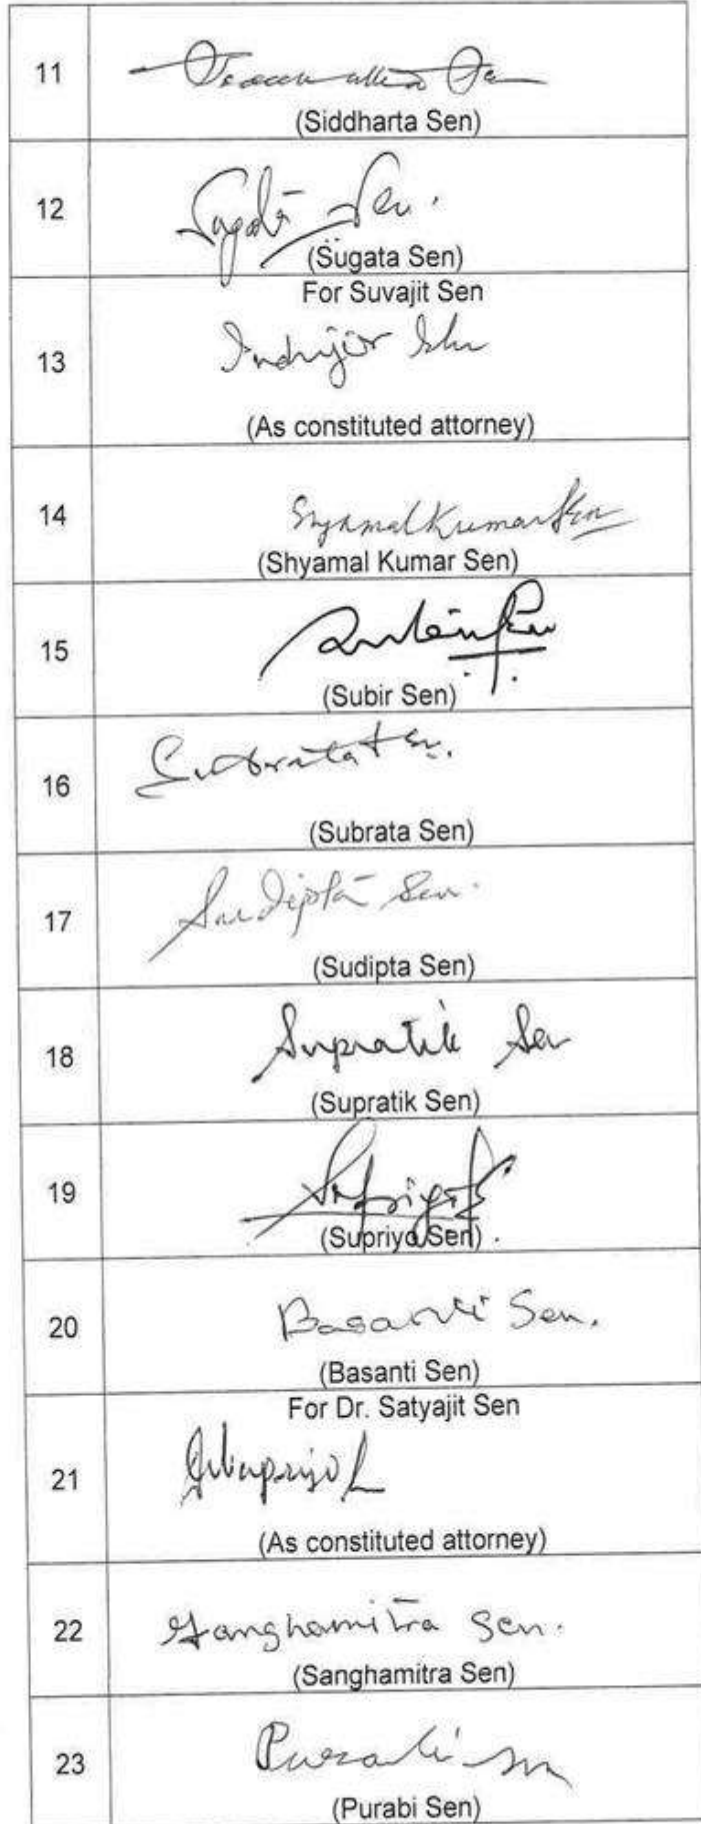 11
(Siddharta Sen)
12
Sugata Sen.
(Sugata Sen)
13
For Suvajit Sen
Indrajit Sen
(As constituted attorney)
14
Shyamal Kumar Sen
(Shyamal Kumar Sen)
15
(Subir Sen)
16
Subrata Sen.
(Subrata Sen)
17
Sudipta Sen.
(Sudipta Sen)
18
Supratik Sen
(Supratik Sen)
19
(Supriyo Sen)
20
Basanti Sen.
(Basanti Sen)
21
For Dr. Satyajit Sen
(As constituted attorney)
22
Sanghamitra Sen.
(Sanghamitra Sen)
23
Purabi Sen
(Purabi Sen)